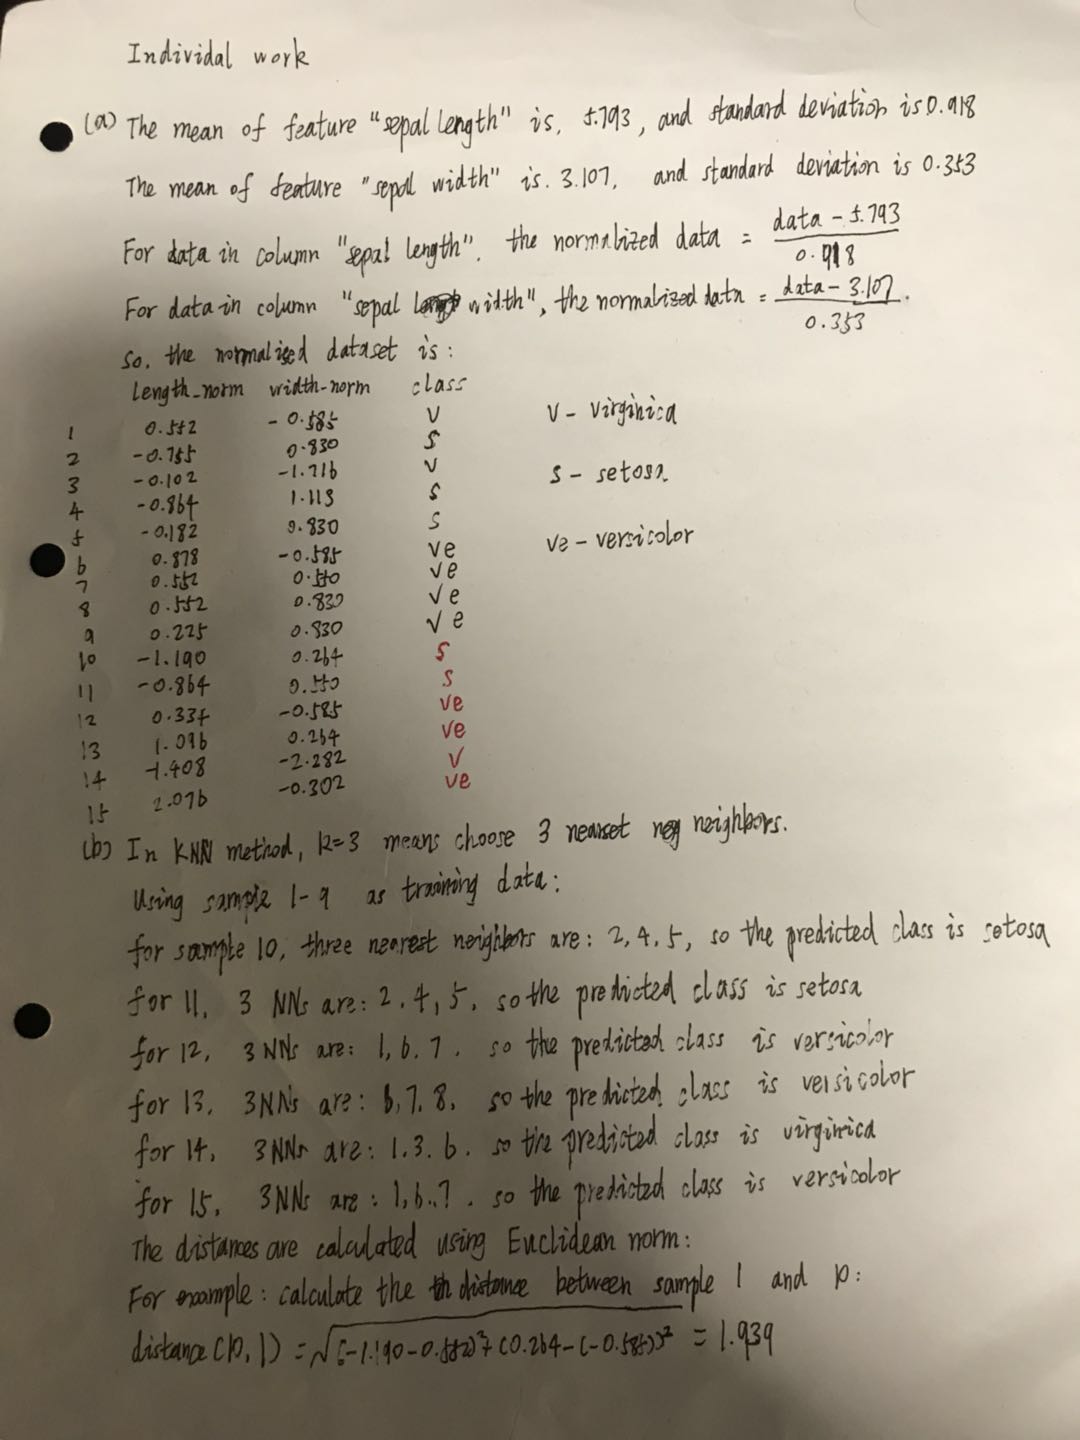 Individal work
(a) The mean of feature "sepal length" is, 5.793, and standard deviation is 0.918
The mean of feature "sepal width" is. 3.107, and standard deviation is 0.353
For data in column "sepal length", the normalized data = data - 5.793 / 0.918
For data in column "sepal width", the normalized data = data - 3.107 / 0.353.
So, the normalized dataset is:
length_norm width-norm class
1 0.552 -0.585 V
2 -0.755 0.830 S
3 -0.102 -1.716 V
4 -0.864 1.113 S
5 -0.182 0.830 S
6 0.878 -0.585 ve
7 0.552 0.550 ve
8 0.552 0.830 ve
9 0.225 0.830 ve
10 -1.190 0.264 S
11 -0.864 0.550 S
12 0.334 -0.585 ve
13 1.096 0.264 ve
14 -1.408 -2.282 V
15 2.076 -0.302 ve
V - virginica
S - setosa
ve - versicolor
(b) In KNN method, k=3 means choose 3 nearset neighbors.
Using sample 1-9 as training data:
for sample 10, three nearest neighbors are: 2, 4, 5, so the predicted class is setosa
for 11, 3 NNs are: 2, 4, 5, so the predicted class is setosa
for 12, 3 NNs are: 1, 6, 7. so the predicted class is versicolor
for 13, 3NNs are: 6, 7, 8, so the predicted class is versicolor
for 14, 3NNs are: 1, 3, 6. so the predicted class is virginica
for 15, 3NNs are: 1, 6, 7. so the predicted class is versicolor
The distances are calculated using Euclidean norm:
For example: calculate the distance between sample 1 and 10:
distance (10, 1) = √(-1.190-0.552)²+(0.264-(-0.585))² = 1.939